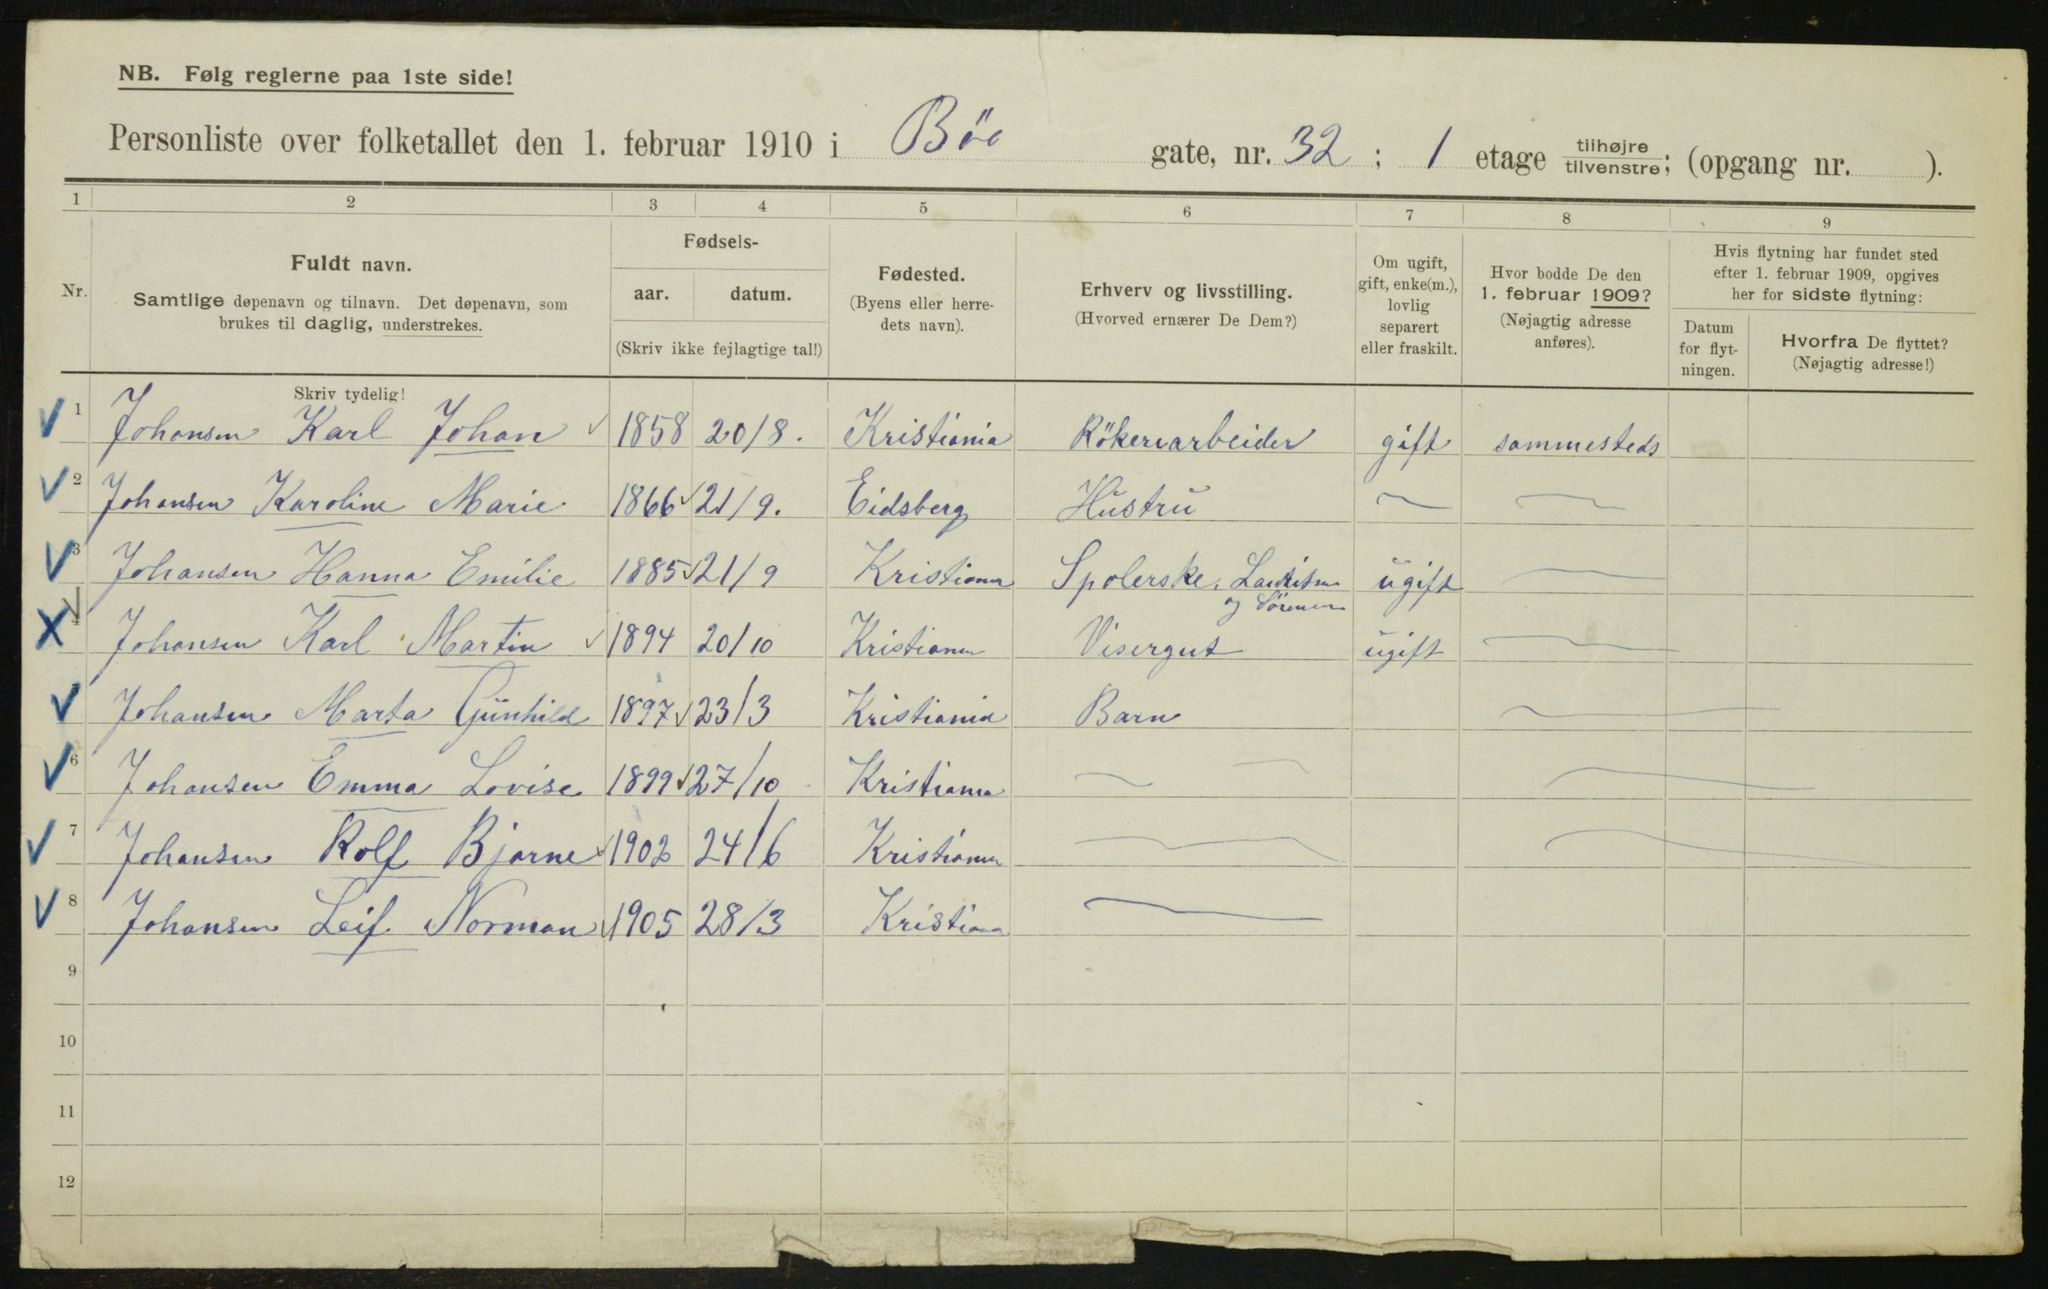 NB. Følg reglerne paa 1ste side!
Personliste over folketallet den 1. februar 1910 i Böe gate, nr. 32 ; 1 etage tilhøjre tilvenstre; (opgang nr. ).
1 2 3 4 5 6 7 8 9
Nr.
Fuldt navn.
Samtlige døpenavn og tilnavn. Det døpenavn, som
brukes til daglig, understrekes.
Fødsels-
aar. datum.
(Skriv ikke fejlagtige tal!)
Fødested.
(Byens eller herre-
dets navn).
Erhverv og livsstilling.
(Hvorved ernærer De Dem?)
Om ugift,
gift, enke(m.),
lovlig
separert
eller fraskilt.
Hvor bodde De den
1. februar 1909?
(Nøjagtig adresse
anføres).
Hvis flytning har fundet sted
efter 1. februar 1909, opgives
her for sidste flytning:
Datum
for flyt-
ningen.
Hvorfra De flyttet?
(Nøjagtig adresse!)
Skriv tydelig!
1 Johansen Karl Johan 1858 20/8. Kristiania gift sammesteds
2 Johansen Karoline Marie 1866 21/9. Eidsberg Hustru
3 Johansen Hanna Emilie 1885 21/9 Kristiania Spolerske ugift
4 Johansen Karl Martin 1894 20/10 Kristiania Visergut ugift
Johansen Marta Gunhild 1897 23/3 Kristiania Barn
6 Johansen Emma Lovise 1899 27/10 Kristiania
7 Johansen Rolf Bjarne 1902 24/6 Kristiania
8 Johansen Leif Norman 1905 28/3 Kristiania
9
10
11
12